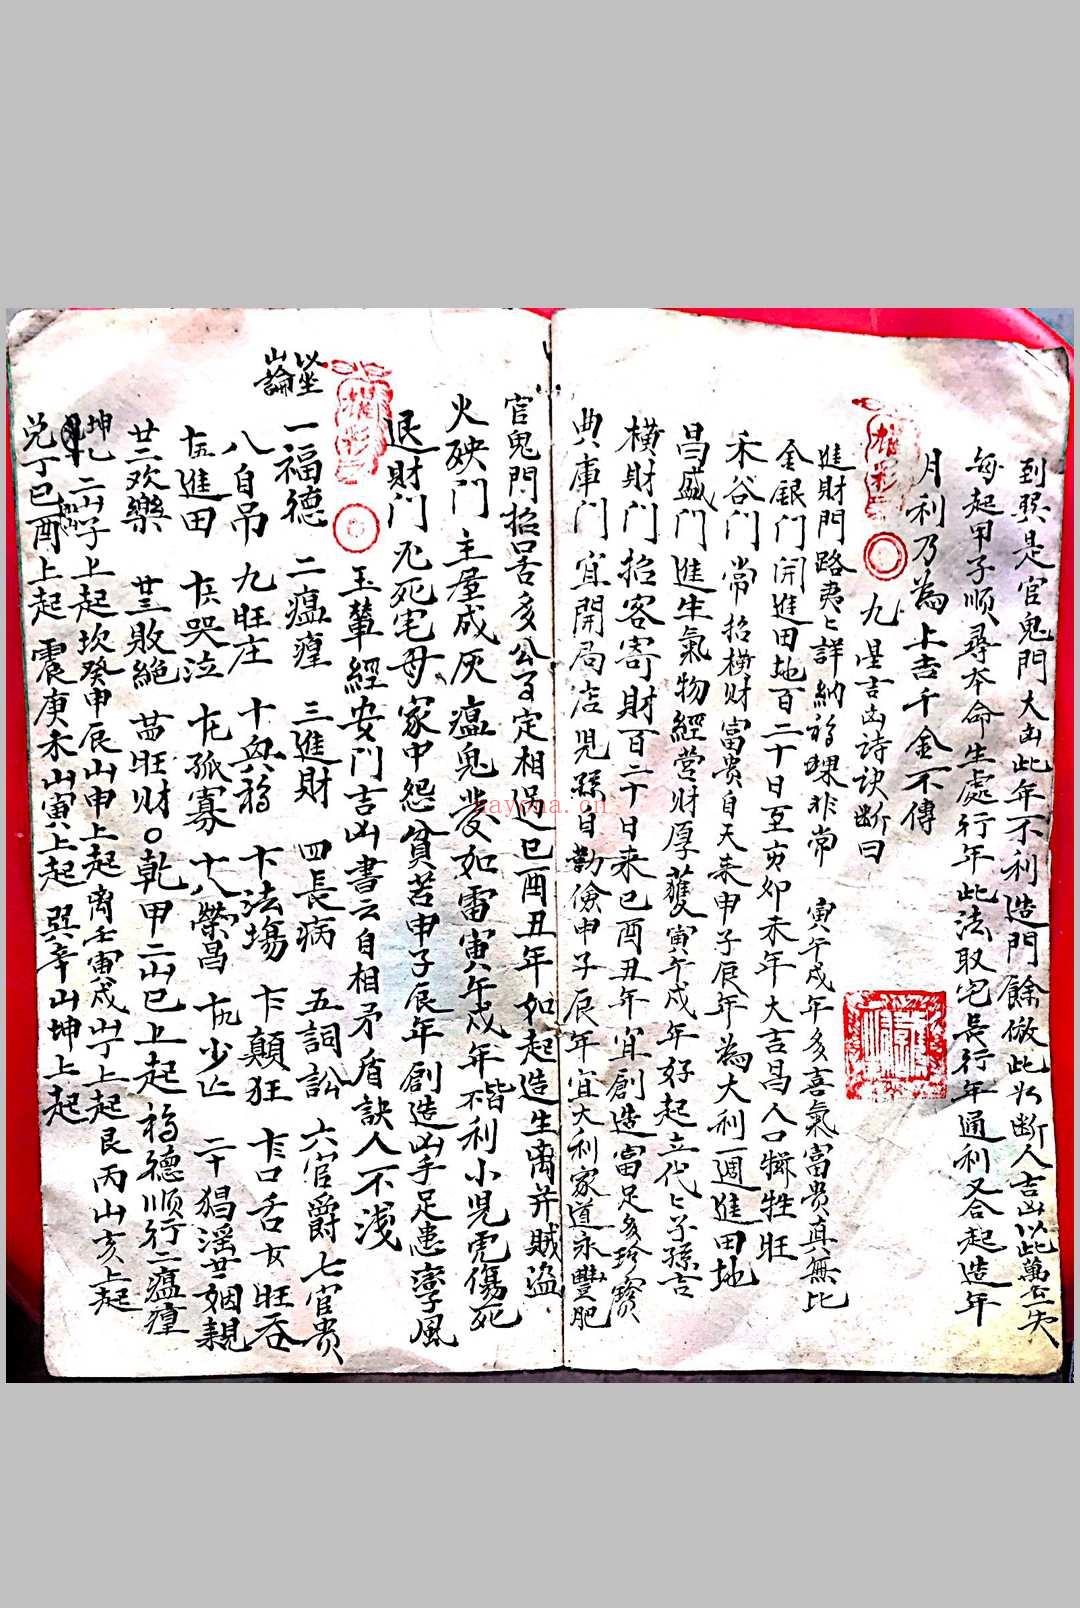 到艮是官鬼門大凶此年不利造門餘倣此断人吉凶以此萬无一失
每起甲子順尋本命生處行年此法取宅長行年通利又合起造年
月利乃為上吉千金不傳
九星吉凶詩訣断曰
進財門路夷々詳納福禄非常 寅午戌年多喜氣富貴真無比
金銀門開進田地百二十日至亥卯未年大吉昌人口犠牲旺
禾谷門常招横財富貴自天来申子辰年為大利一週進田地
昌盛門進生氣物經营财厚蔓寅午戌年好起立代々子孫吉
横財門招客寄財百二十日来巳酉丑年宜創造富足多珍寳
典庫門宜開局店児孫自勤儉申子辰年宜大利家道永豐肥
官鬼門招呂多公了定相逞巳酉丑年如起造生离并賊盗
火殃門主屋成灰瘟鬼發如雷寅午戌年皆不利小児虎傷死
退財门先死宅母家中怨貧苦申子辰年創造凶手足患瘋風
玉輦經安门吉凶書云自相矛盾訣人不浅
以坐山論
一福德 二瘟瘟 三進財 四長病 五詞訟 六官爵 七官貴
八自吊 九旺庄 十血 十一法塲 十二顛狂 十三口舌 十四旺
十五進田 十六哭泣 十七孤寡 十八榮昌 十九少亡 二十猖淫 廿一姻親
廿二欢樂 廿三敗絕 廿四旺财 〇乾甲二山巳上起福德順行二瘟瘟
坤乙二山子上起坎癸申辰山申上起离壬寅戌山子上起艮丙山亥上起
兑丁巳酉上起 震庚未山寅上起 巽辛山坤上起
nayona.cn